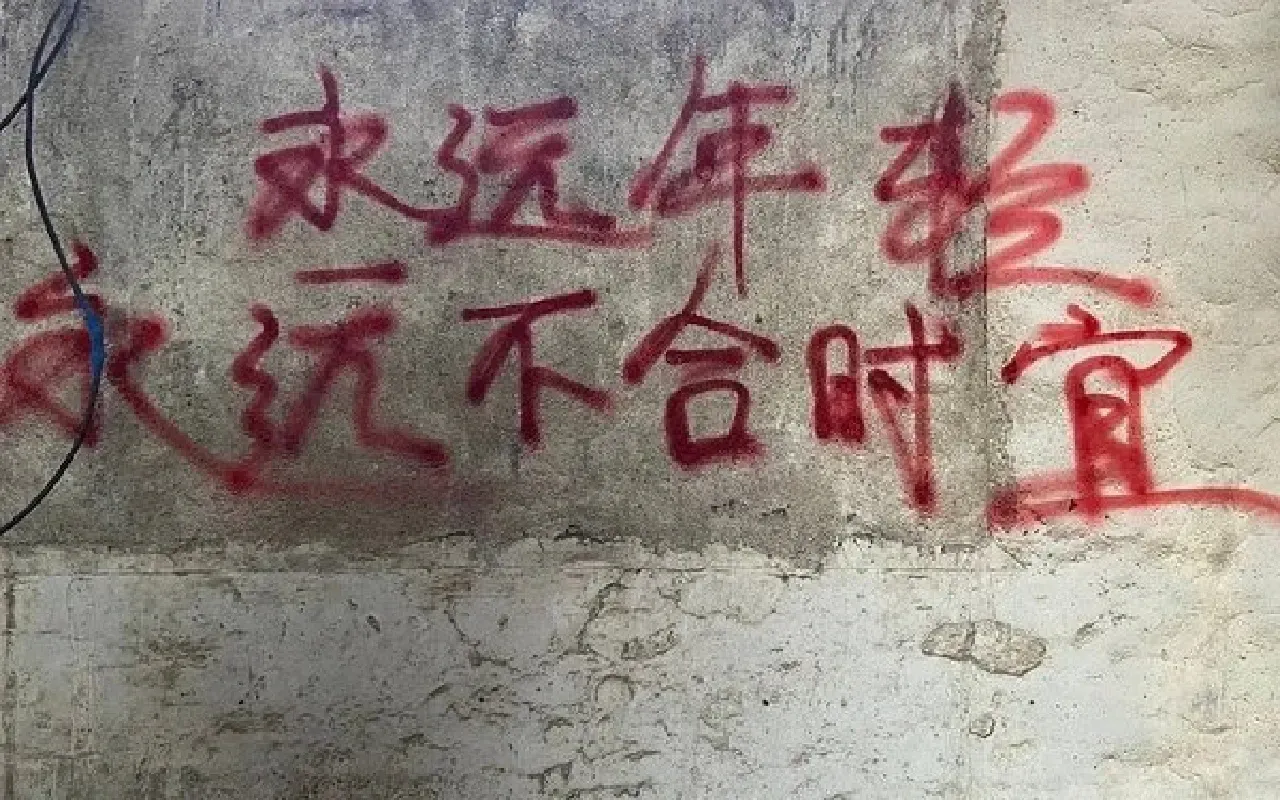 永远年轻
永远不合时宜